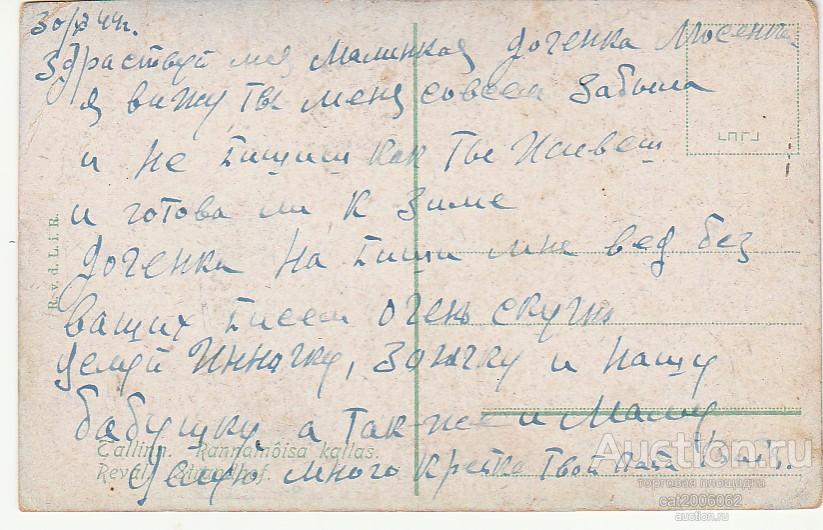 30/X 44 г.
Здраствуй моя Малинкая доченка Люсенька
я вижу ты меня совсем забыла
и не пишиш как ты живеш
и готова ли к зиме
доченка на пиши мне вед без
ваших писем очень скучно
целуй Инночку, Зоичку и нашу
бабушку, а так-же и Маму
Целую много крепко твой папа
R. v. d. L. i. R.
Tallinn. Rannamõisa kallas.
Reval.
Auction.ru
торговая площадка
cat2006062
auction.ru